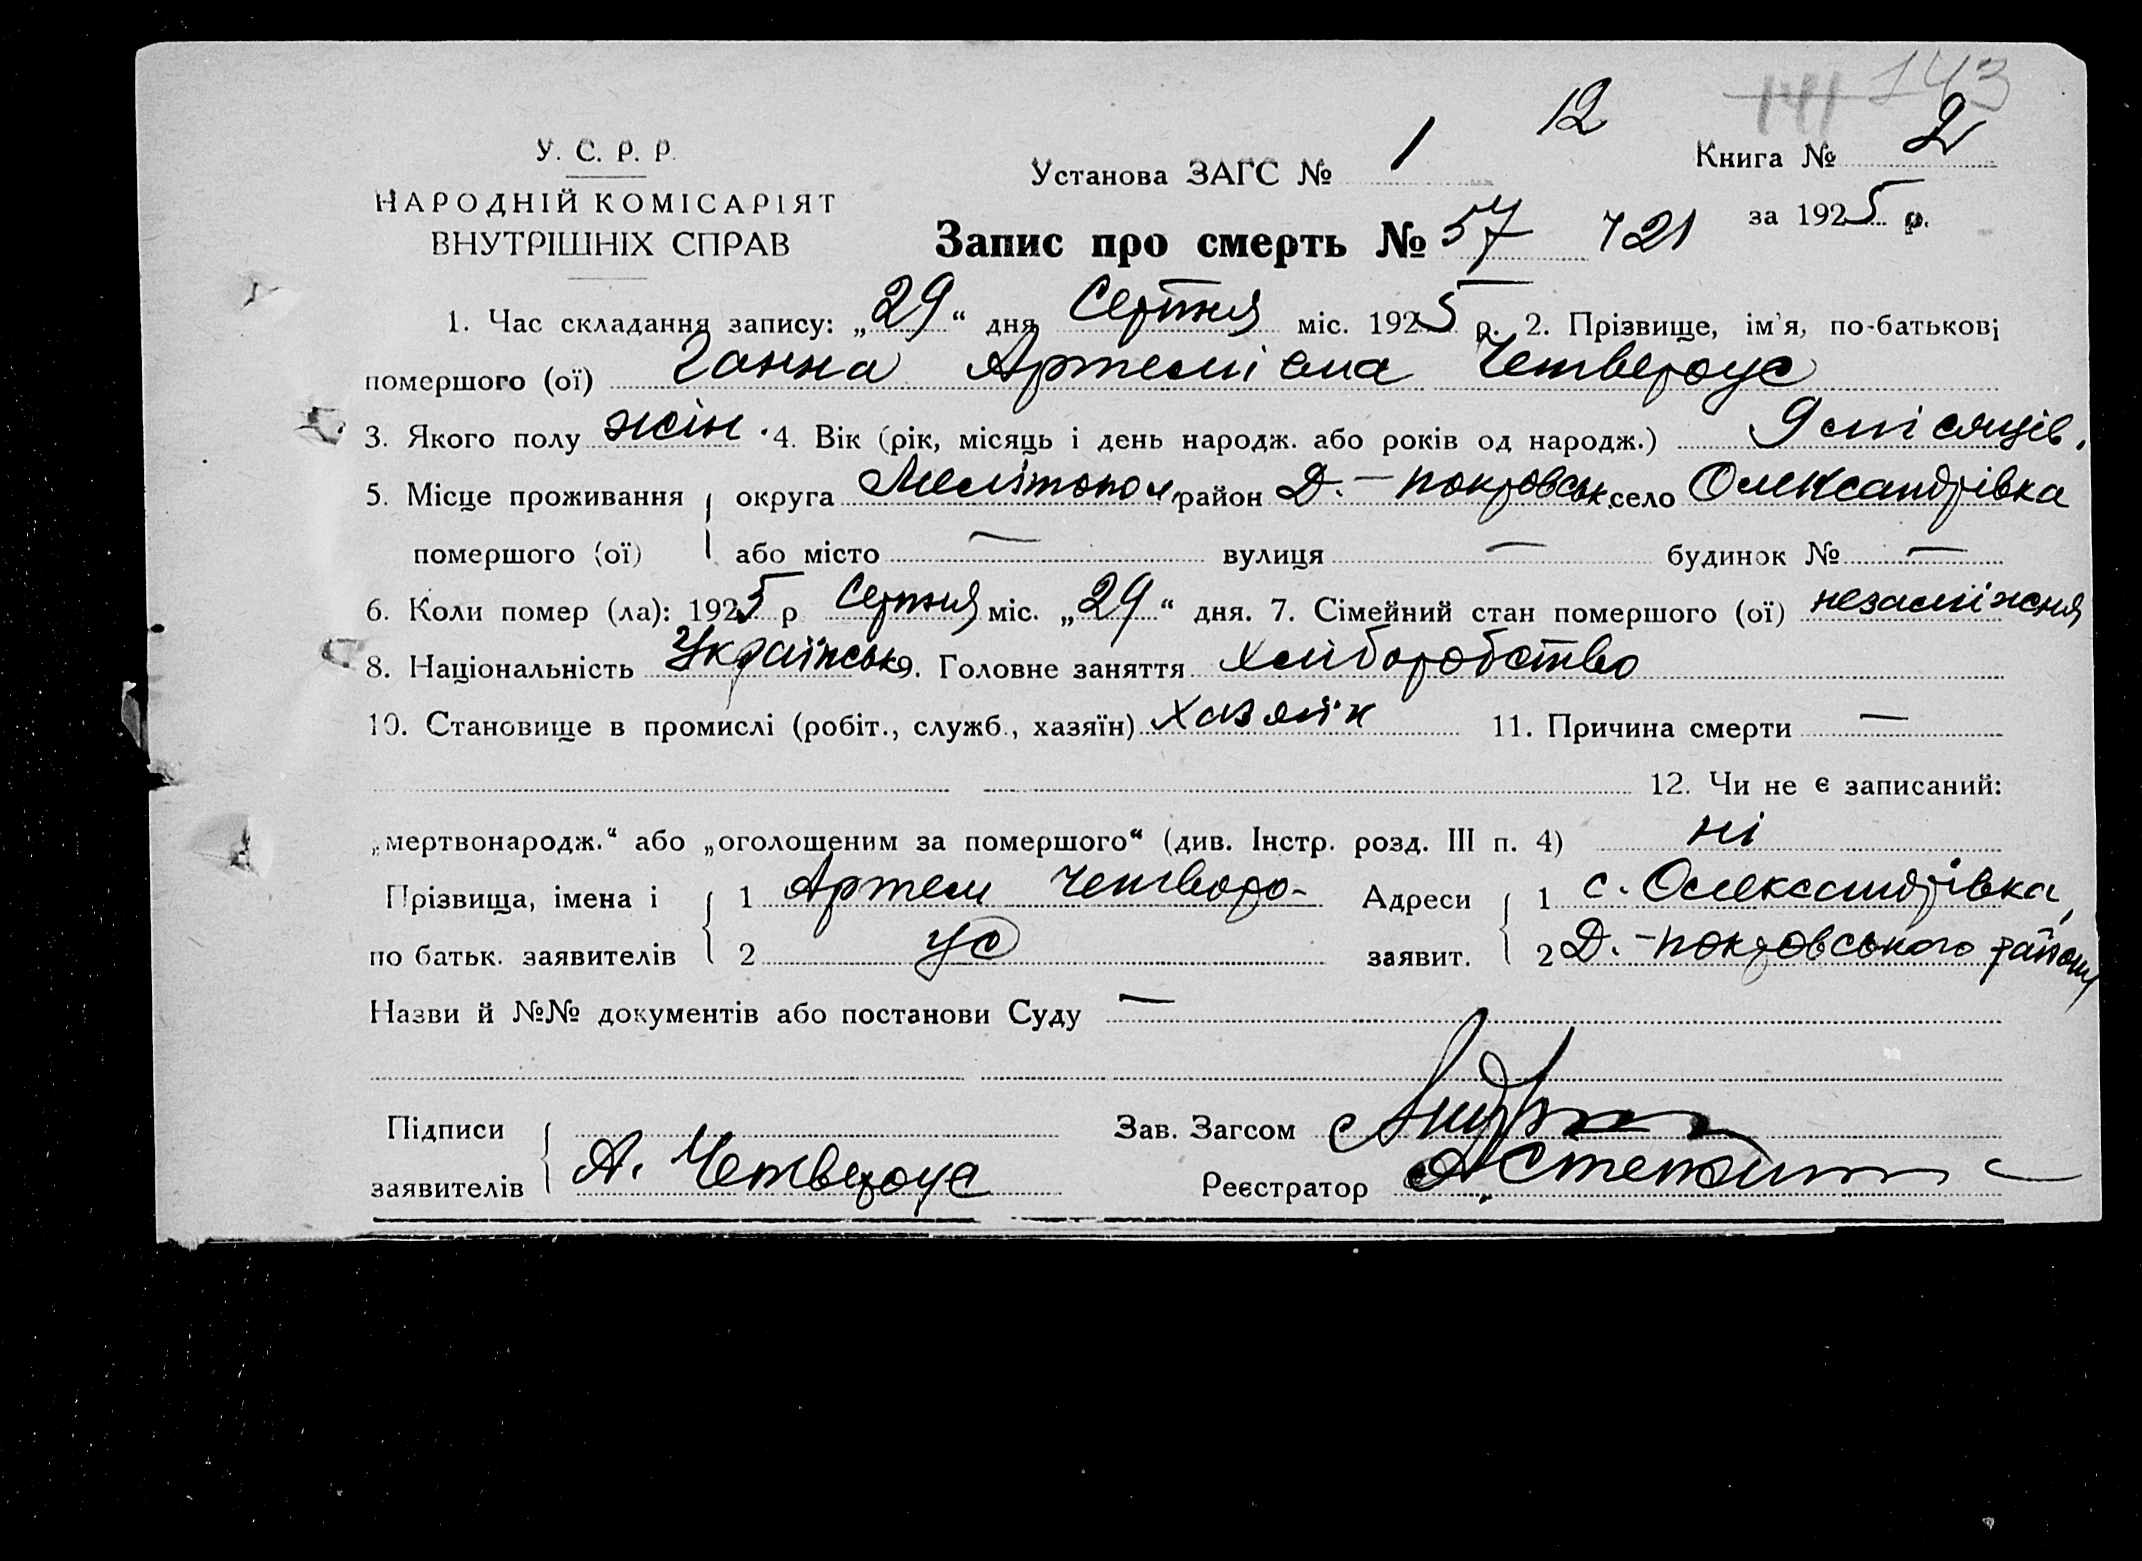 141 143
12
У. С. Р. Р.
Установа ЗАГС № 1
Книга № 2
НАРОДНІЙ КОМІСАРІЯТ
ВНУТРІШНІХ СПРАВ
за 1925 р.
Запис про смерть № 57 421
1. Час складання запису: „29“ дня Серпня міс. 1925 р. 2. Прізвище, ім'я, по-батькові
помершого (ої) Ганна Артемієма Четвероус
3. Якого полу жін. 4. Вік (рік, місяць і день народж. або років од народж.) 9 місяців.
5. Місце проживання округа Мелітопол район Д.-покровськ село Олександрівка
помершого (ої) або місто — вулиця — будинок № —
6. Коли помер (ла): 1925 р Серпня міс. „29“ дня. 7. Сімейний стан помершого (ої) незаміжня
8. Національність Українськ 9. Головне заняття хліборобство
10. Становище в промислі (робіт., служб., хазяїн) хазяїн 11. Причина смерти —
12. Чи не є записаний:
„мертвонародж.“ або „оголошеним за помершого“ (див. Інстр. розд. III п. 4) ні
Прізвища, імена і 1 Артем Четверо- Адреси 1 с. Олександрівка,
по батьк. заявителів 2 ус заявит. 2 Д.-покровського району
Назви й №№ документів або постанови Суду —
Підписи Зав. Загсом
заявителів А. Четвероус Реєстратор